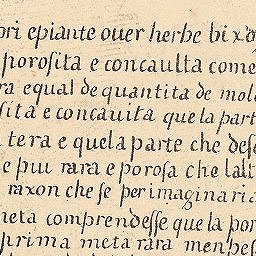 ori epiante ouer herbe bixog
porosita e concauita come
ra equal de quantita de mol
sita e concauita que la part
tera e quela parte che des
e piu rara e porosa che lalt
raxon che se per imaginaria
neta comprendesse que la por
prima meta rara men pes